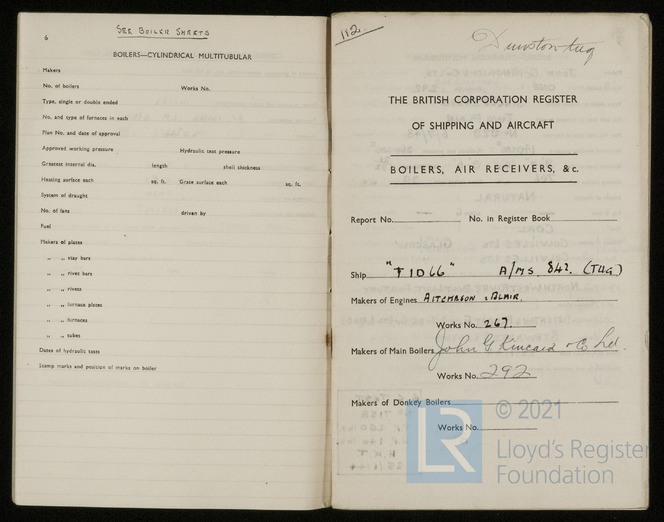 6
SEE BOILER SHEETS
BOILERS—CYLINDRICAL MULTITUBULAR
Makers
No. of boilers Works No.
Type, single or double ended
No. and type of furnaces in each
Plan No. and date of approval
Approved working pressure Hydraulic test pressure
Greatest internal dia. length shell thickness
Heating surface each sq. ft. Grate surface each sq. ft.
System of draught
No. of fans driven by
Fuel
Makers of plates
„ „ stay bars
„ „ rivet bars
„ „ rivess
„ „ furnace plates
„ „ furnaces
„ „ tubes
Dates of hydraulic tests
Stamp marks and position of marks on boiler
112.
Dunston tug
THE BRITISH CORPORATION REGISTER
OF SHIPPING AND AIRCRAFT
BOILERS, AIR RECEIVERS, &c.
Report No. No. in Register Book
Ship "TID 66" A/MS. 842. (TUG)
Makers of Engines AITCHESON & BLAIR.
Works No. 267.
Makers of Main Boilers John G Kincaid & Co Ltd.
Works No. 292
Makers of Donkey Boilers
Works No.
LR
© 2021
Lloyd's Register
Foundation